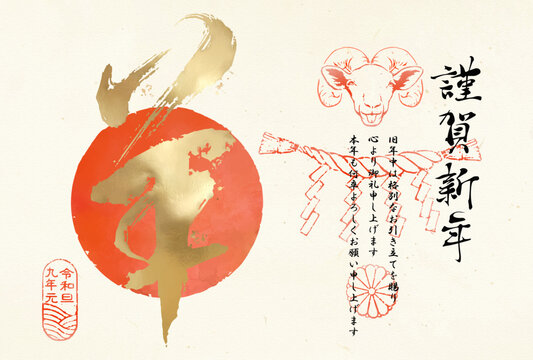 謹賀新年
旧年中は格別なお引き立てを賜り
心より御礼申し上げます
本年も何卒よろしくお願い申し上げます
令和旦
九年元